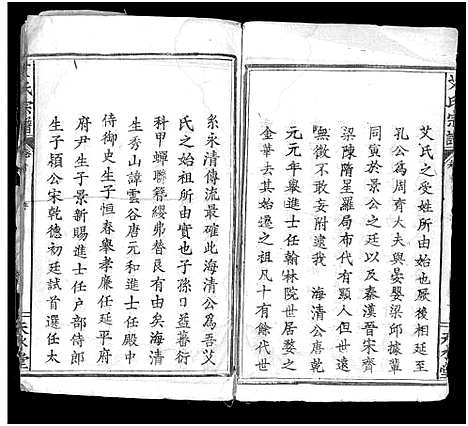 艾氏之受姓所由始也厥後相延至
孔公為周齊大夫與晏嬰梁邱據輩
同寅於景公之廷以及秦漢晉宋齊
梁陳隋星羅局布代有顯人但世遠
無徵不敢妄附逮我 海清公唐乾
元元年舉進士任翰林院世居婺之
金華去其始遷之祖凡十有餘代世
系永清傳流最確此海清公為吾艾
氏之始祖所由實也子孫日益蕃衍
科甲蟬聯簪纓弗替良有由矣海清
生秀山諱雲谷唐元和進士任殿中
侍御史生子恒春舉孝廉任延平府
府尹生子景新賜進士任户部侍郎
生子穎公宋乾德初廷試首選任太
艾氏宗譜
氏宗譜
天水堂